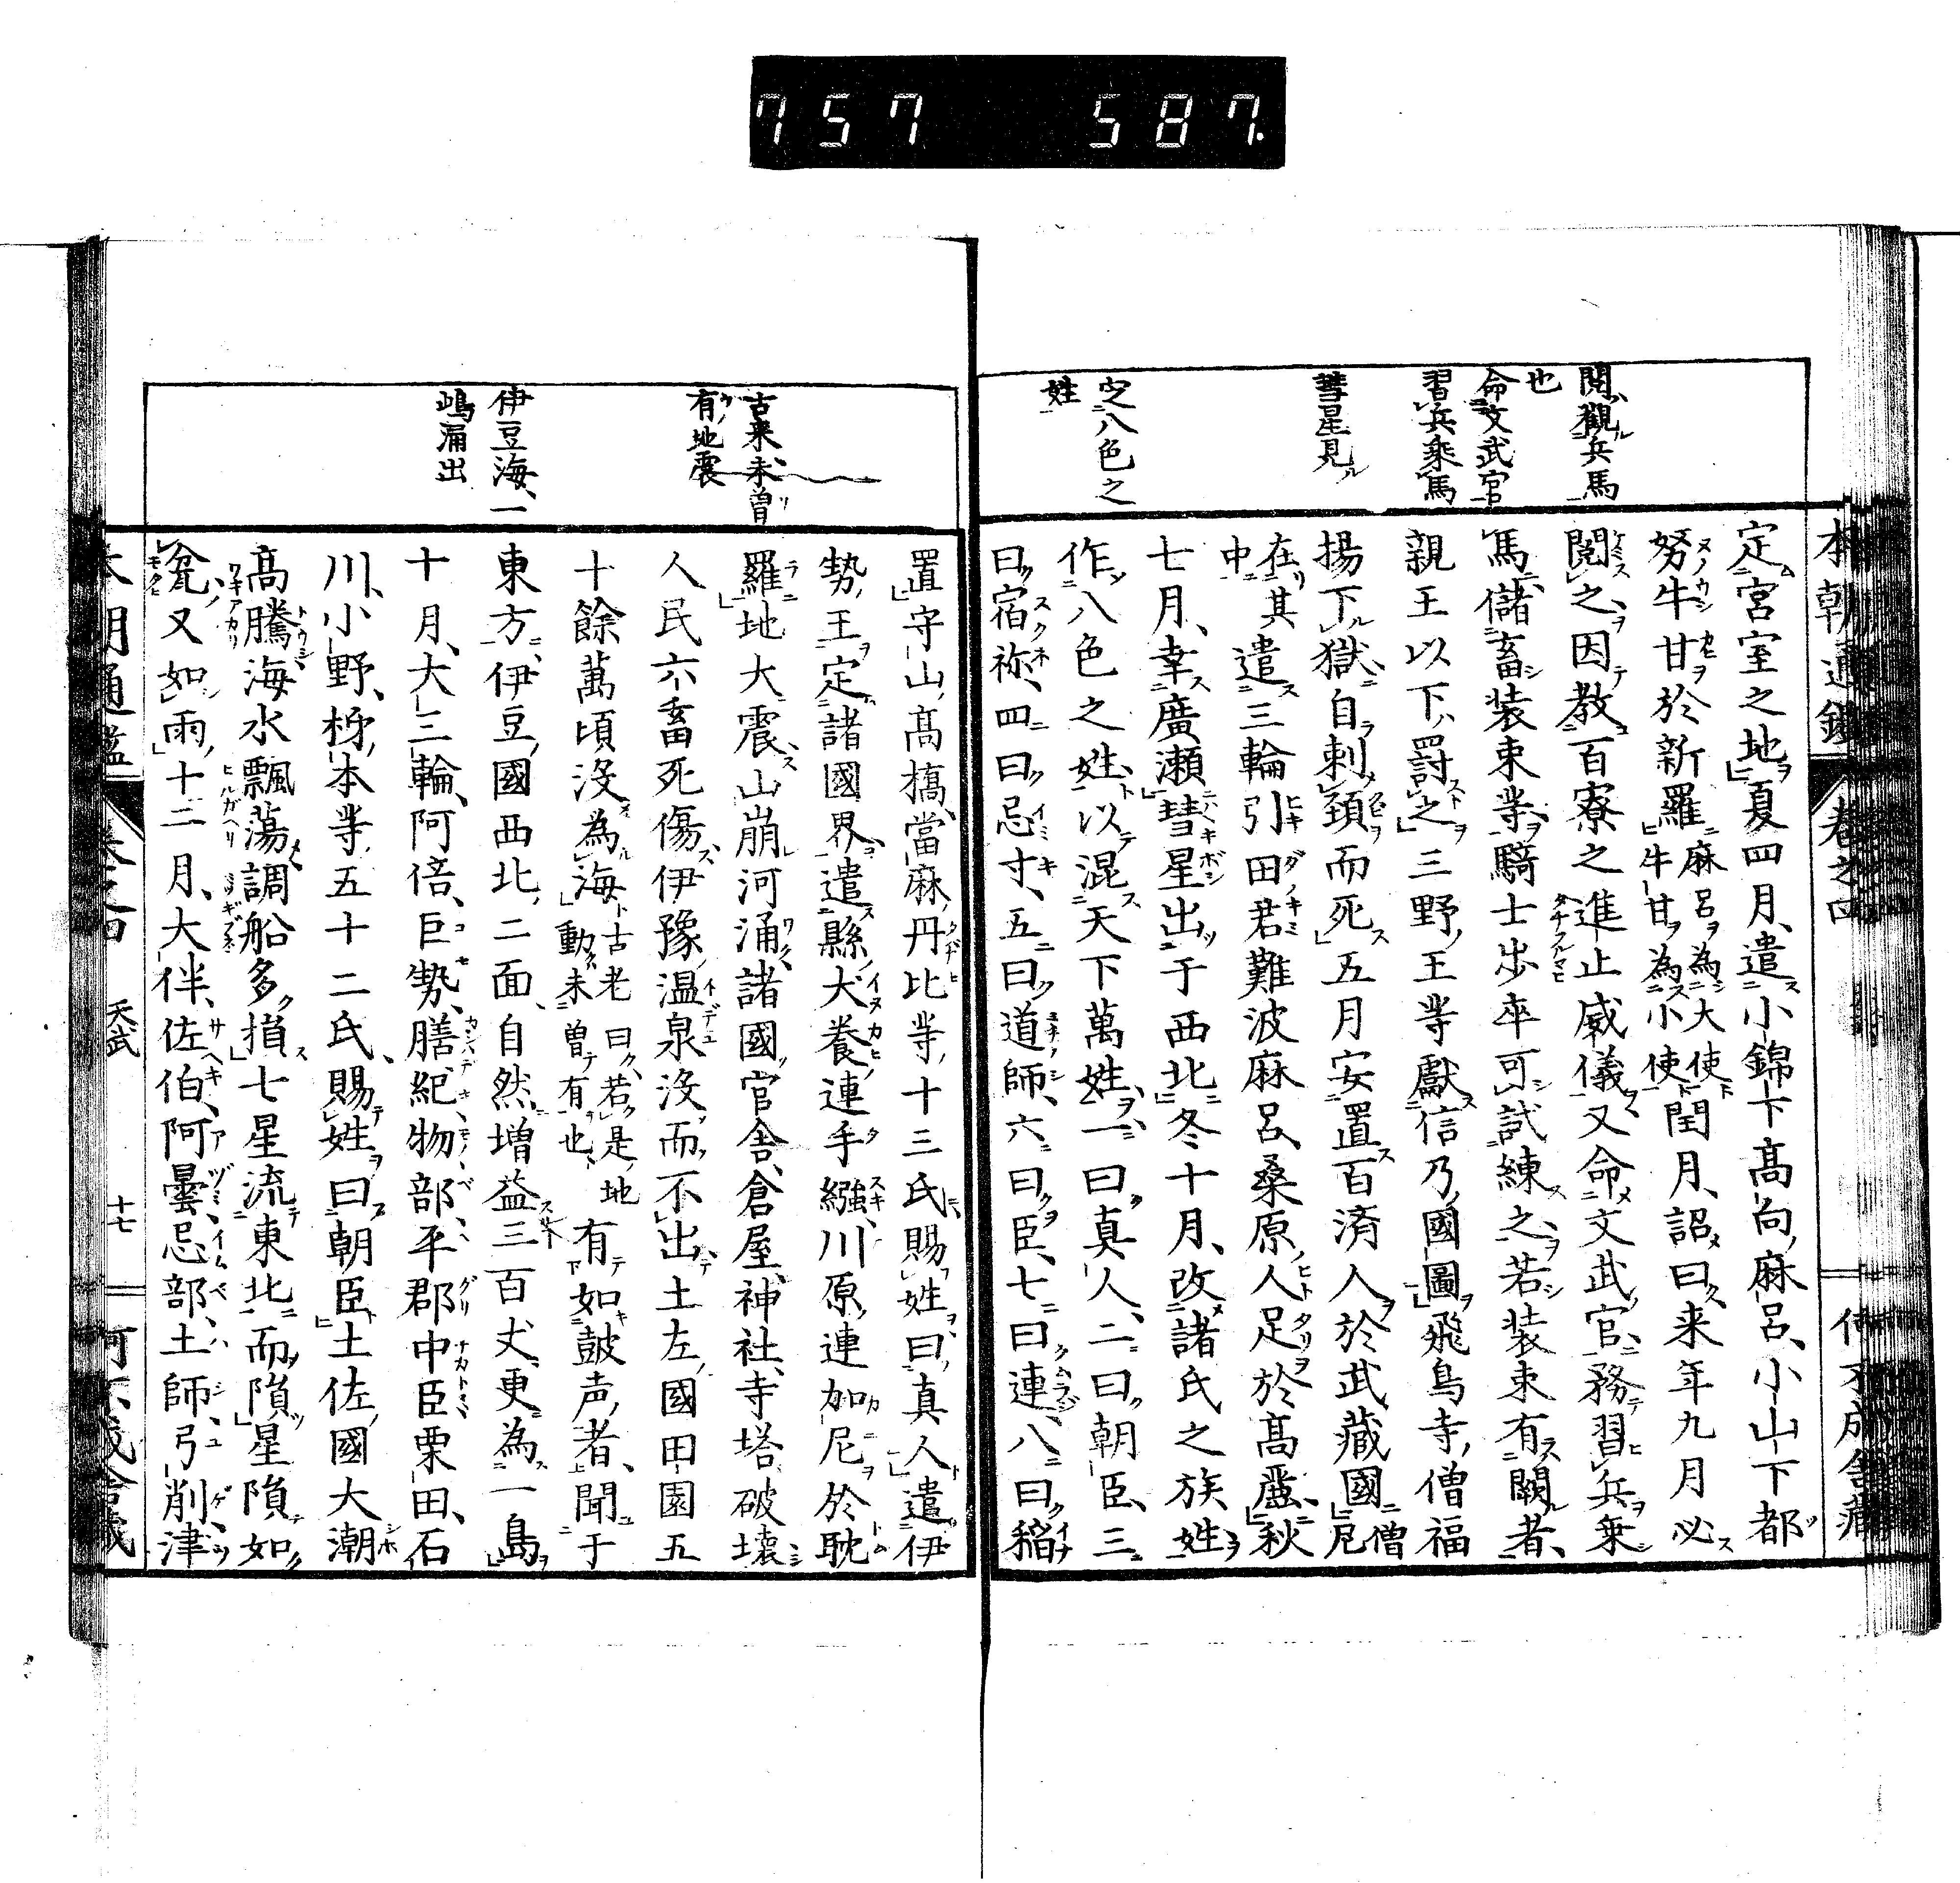 757 587.
本朝通鑑 卷之四
閲觀兵馬
也
命文武官
習兵乘馬
彗星見
定八色之
姓
定宮室之地夏四月、遣小錦下髙向麻呂、小山下都
努牛甘於新羅麻呂為大使牛甘為小使閏月、詔曰来年九月必
閲之因教百寮之進止威儀又命文武官務習兵乗
馬儲畜装束䒭騎士歩卒可試練之若装束有闕者、
親王以下罰之三野王䒭獻信乃國圖飛鳥寺僧福
揚下獄自刺頚而死五月安置百済人於武藏國僧尼
在其中遣三輪引田君難波麻呂、桑原人足於髙麗秋
七月、幸廣瀬彗星出于西北冬十月、改諸氏之族姓
作八色之姓以混天下萬姓一曰真人、二曰朝臣、三
曰宿祢、四曰忌寸、五曰道師、六曰臣、七曰連、八曰稲
古来未曾
有地震
伊豆海一
嶋涌出
置守山髙橋當麻丹比䒭十三氏賜姓曰真人遣伊
勢王定諸國界遣縣犬養連手繦川原連加尼於耽
羅地大震山崩河涌諸國官舎倉屋神社寺塔破壊
人民六畜死傷伊豫温泉没而不出土左國田園五
十餘萬頃没為海古老曰若是地動未曾有也有如皷声者聞于
東方伊豆國西北二面自然増益三百丈更為一島
十月、大三輪、阿倍、巨勢、膳、紀、物部、平郡、中臣、栗田、石
川、小野、栘本䒭五十二氏、賜姓曰朝臣土佐國大潮
髙騰海水飄蕩調船多損七星流東北而隕星隕如
瓮又如雨十二月、大伴、佐伯、阿曇、忌部、土師、弓削、津
本朝通鑑 卷之四 天武 十七